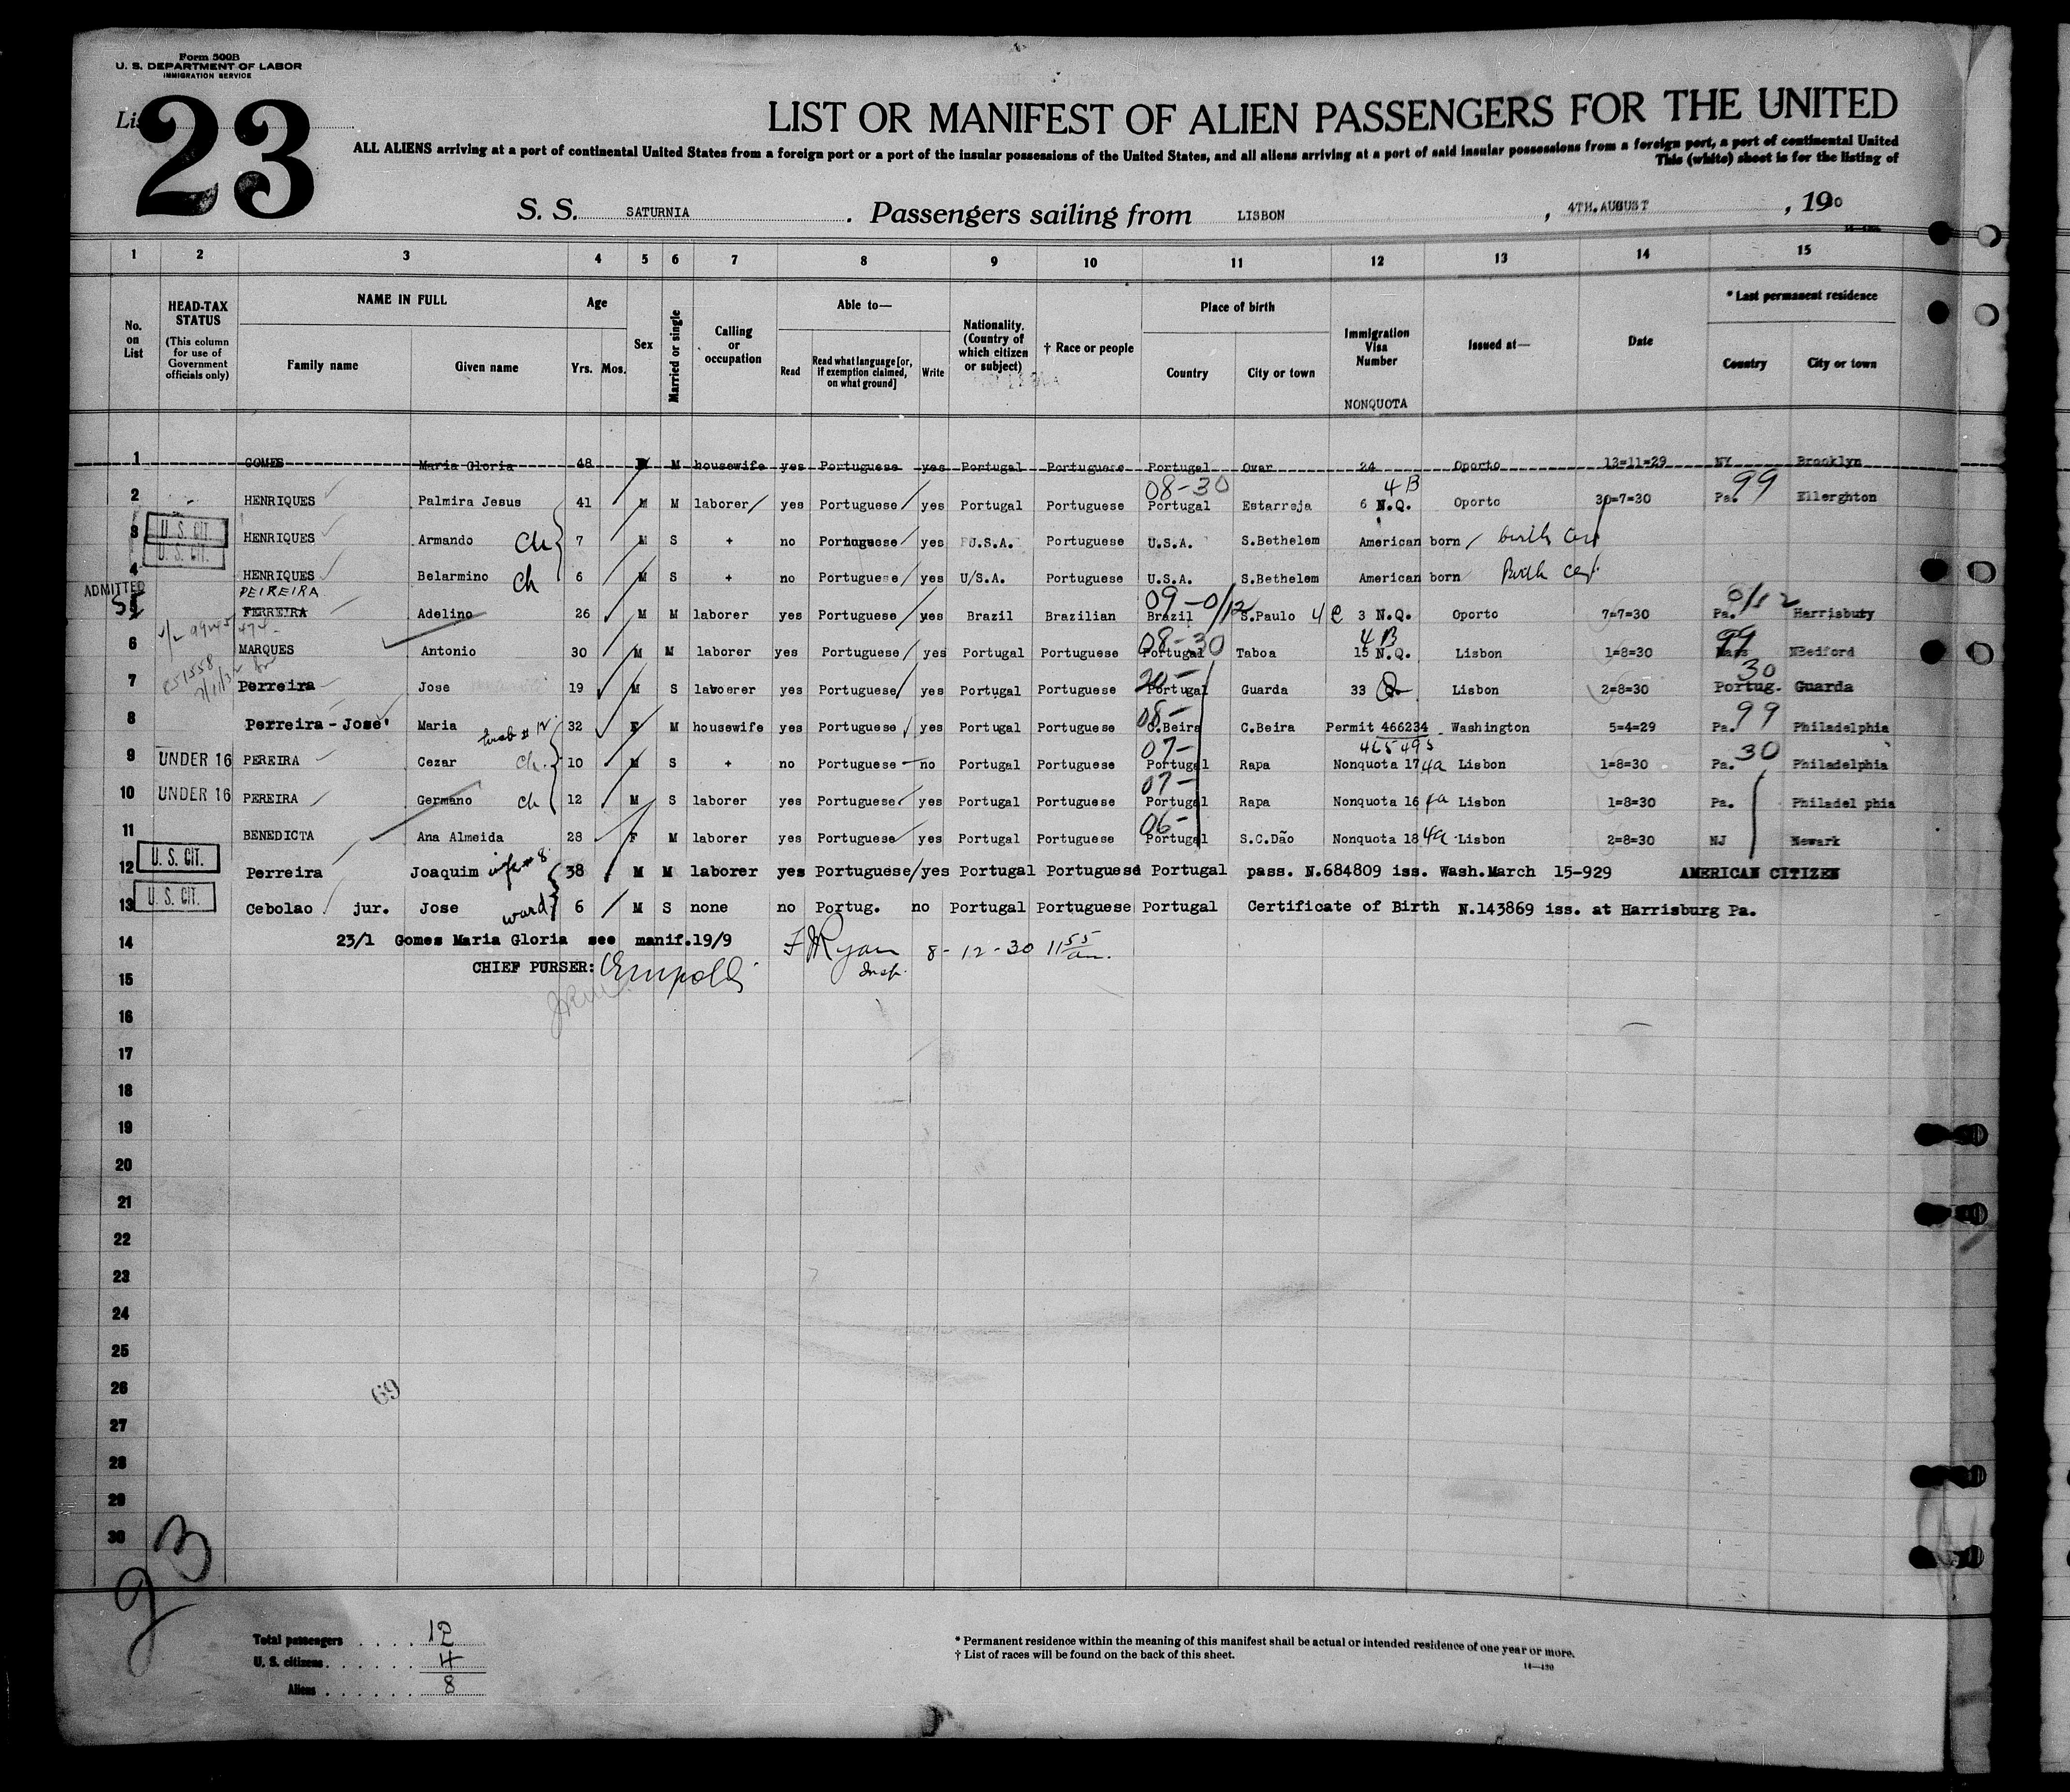 Form 500B
U. S. DEPARTMENT OF LABOR
IMMIGRATION SERVICE
23
LIST OR MANIFEST OF ALIEN PASSENGERS FOR THE UNITED
ALL ALIENS arriving at a port of continental United States from a foreign port or a port of the insular possessions of the United States, and all aliens arriving at a port of said insular possessions from a foreign port, a port of continental United
This (white) sheet is for the listing of
S. S. SATURNIA. Passengers sailing from LISBON, 4TH.AUGUST, 19
1 2 3 4 5 6 7 8 9 10 11 12 13 14 15
No. on List
HEAD-TAX STATUS (This column for use of Government officials only)
NAME IN FULL
Family name Given name
Age
Yrs. Mos.
Sex
Married or single
Calling or occupation
Able to—
Read Read what language [or, if exemption claimed, on what ground] Write
Nationality. (Country of which citizen or subject)
† Race or people
Place of birth
Country City or town
Immigration Visa Number
NONQUOTA
Issued at—
Date
* Last permanent residence
Country City or town
1 GOMES Maria Gloria 48 M housewife yes Portuguese yes Portugal Portuguese Portugal Ovar 24 Oporto 13=11=29 NY Brooklyn
08-30 4B 99
2 HENRIQUES Palmira Jesus 41 M M laborer yes Portuguese yes Portugal Portuguese Portugal Estarreja 6 N.Q. Oporto 30=7=30 Pa. Ellerghton
3 U. S. CIT. HENRIQUES Armando ch 7 M S + no Portuguese yes U.S.A. Portuguese U.S.A. S.Bethelem American born birth
U. S. CIT.
4 HENRIQUES Belarmino ch 6 M S + no Portuguese yes U/S.A. Portuguese U.S.A. S.Bethelem American born Birth
ADMITTED PEIREIRA 09-0/12 0/12
5 FERREIRA Adelino 26 M M laborer yes Portuguese yes Brazil Brazilian Brazil S.Paulo 4e 3 N.Q. Oporto 7=7=30 Pa. Harrisbury
08-30 4B 99
6 MARQUES Antonio 30 M M laborer yes Portuguese yes Portugal Portuguese Portugal Taboa 15 N.Q. Lisbon 1=8=30 Mass NBedford
20- 30
7 Perreira Jose 19 M S laboerer yes Portuguese yes Portugal Portuguese Portugal Guarda 33 Q Lisbon 2=8=30 Portug. Guarda
08- 99
8 Perreira-Jose' Maria 32 F M housewife yes Portuguese yes Portugal Portuguese C.Beira C.Beira Permit 466234 Washington 5=4=29 Pa. Philadelphia
07- 465495 30
9 UNDER 16 PEREIRA Cezar ch. 10 M S + no Portuguese no Portugal Portuguese Portugal Rapa Nonquota 17 4a Lisbon 1=8=30 Pa. Philadelphia
07-
10 UNDER 16 PEREIRA Germano ch 12 M S laborer yes Portuguese yes Portugal Portuguese Portugal Rapa Nonquota 16 4a Lisbon 1=8=30 Pa. Philadel phia
06-
11 BENEDICTA Ana Almeida 28 F M laborer yes Portuguese yes Portugal Portuguese Portugal S.C.Dão Nonquota 18 4a Lisbon 2=8=30 NJ Newark
12 U. S. CIT. Perreira Joaquim wife # 8 38 M M laborer yes Portuguese yes Portugal Portuguese Portugal pass. N.684809 iss. Wash.March 15-929 AMERICAN CITIZEN
13 U. S. CIT. Cebolao jur. Jose ward 6 M S none no Portug. no Portugal Portuguese Portugal Certificate of Birth N.143869 iss. at Harrisburg Pa.
14 23/1 Gomes Maria Gloria see manif.19/9 F M Ryan Insp. 8-12-30 11 55 am.
CHIEF PURSER:
15
16
17
18
19
20
21
22
23
24
25
26
69
27
28
29
30
23
Total passengers 12
U. S. citizens 4
Aliens 8
* Permanent residence within the meaning of this manifest shall be actual or intended residence of one year or more.
† List of races will be found on the back of this sheet.